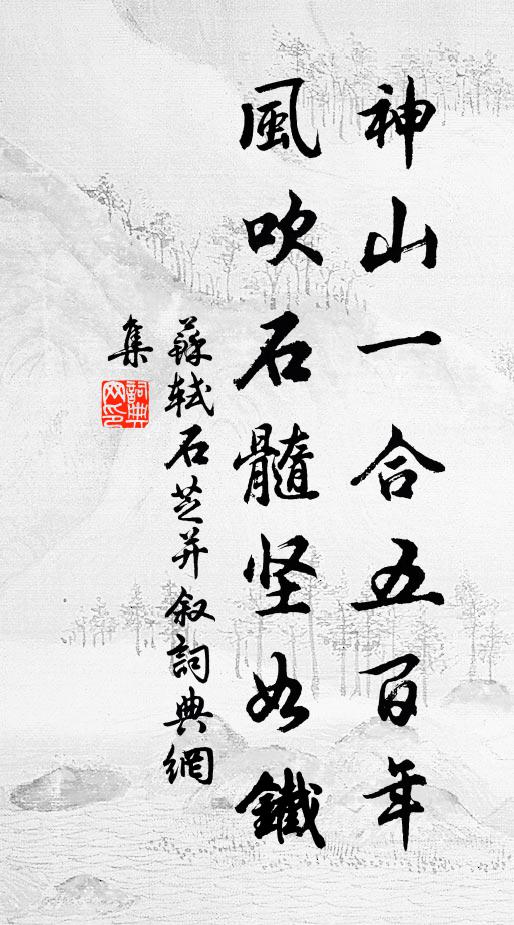 神山一合五百年
風吹石髓坚如鐵
蘇軾石芝并叙詞典網
集
詞典
网印